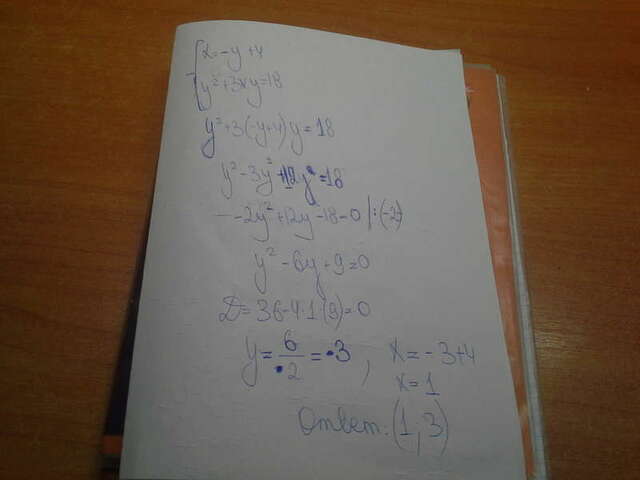 x=-y+4
y²+3xy=18
y²+3(-y+4)y=18
y²-3y²+12y=18
-2y²+12y-18=0 |:(-2)
y²-6y+9=0
D=36-4·1(9)=0
y=6/2=3, x=-3+4
x=1
Ответ: (1,3)